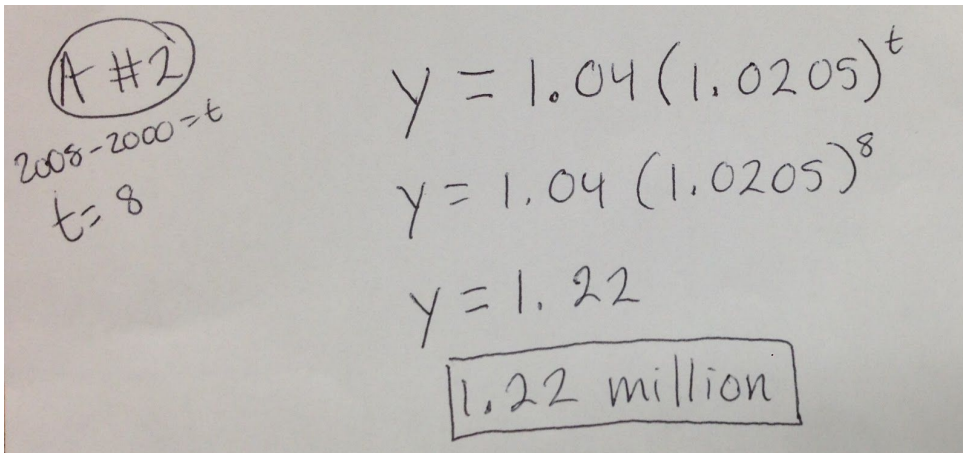 A #2
2008-2000=t
t=8
y = 1.04(1.0205)^t
y = 1.04 (1.0205)^8
y = 1.22
1.22 million